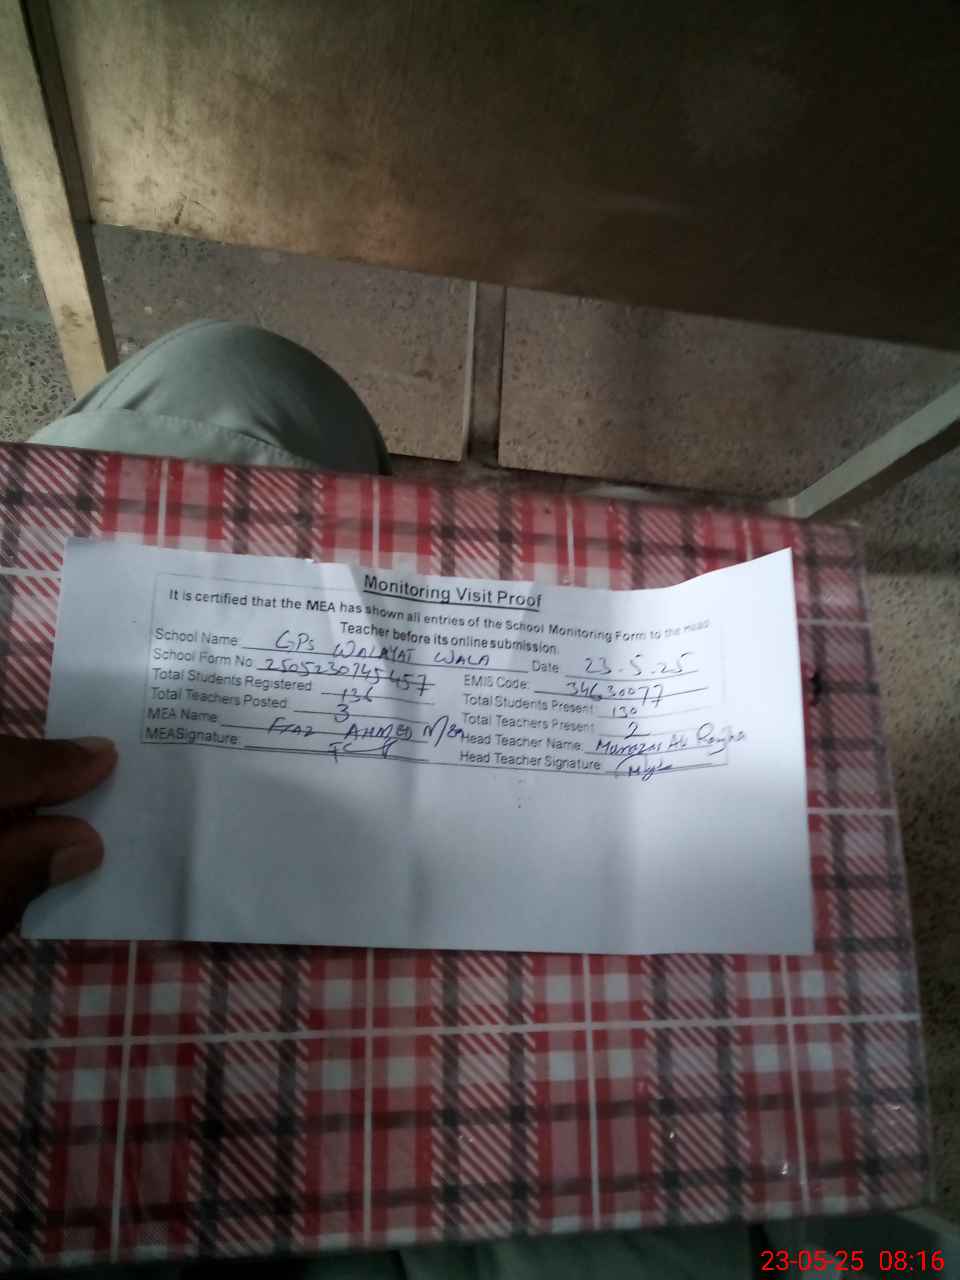 Monitoring Visit Proof
It is certified that the MEA has shown all entries of the School Monitoring Form to the Head
Teacher before its online submission.
School Name: GPS WALAYAT WALA Date: 23.5.25
School Form No 2505230745457 EMIS Code: 34630077
Total Students Registered 136 Total Students Present: 130
Total Teachers Posted: 3 Total Teachers Present 2
MEA Name: AHMED Head Teacher Name: Ali
MEASignature: Head Teacher Signature:
23-05-25 08:16